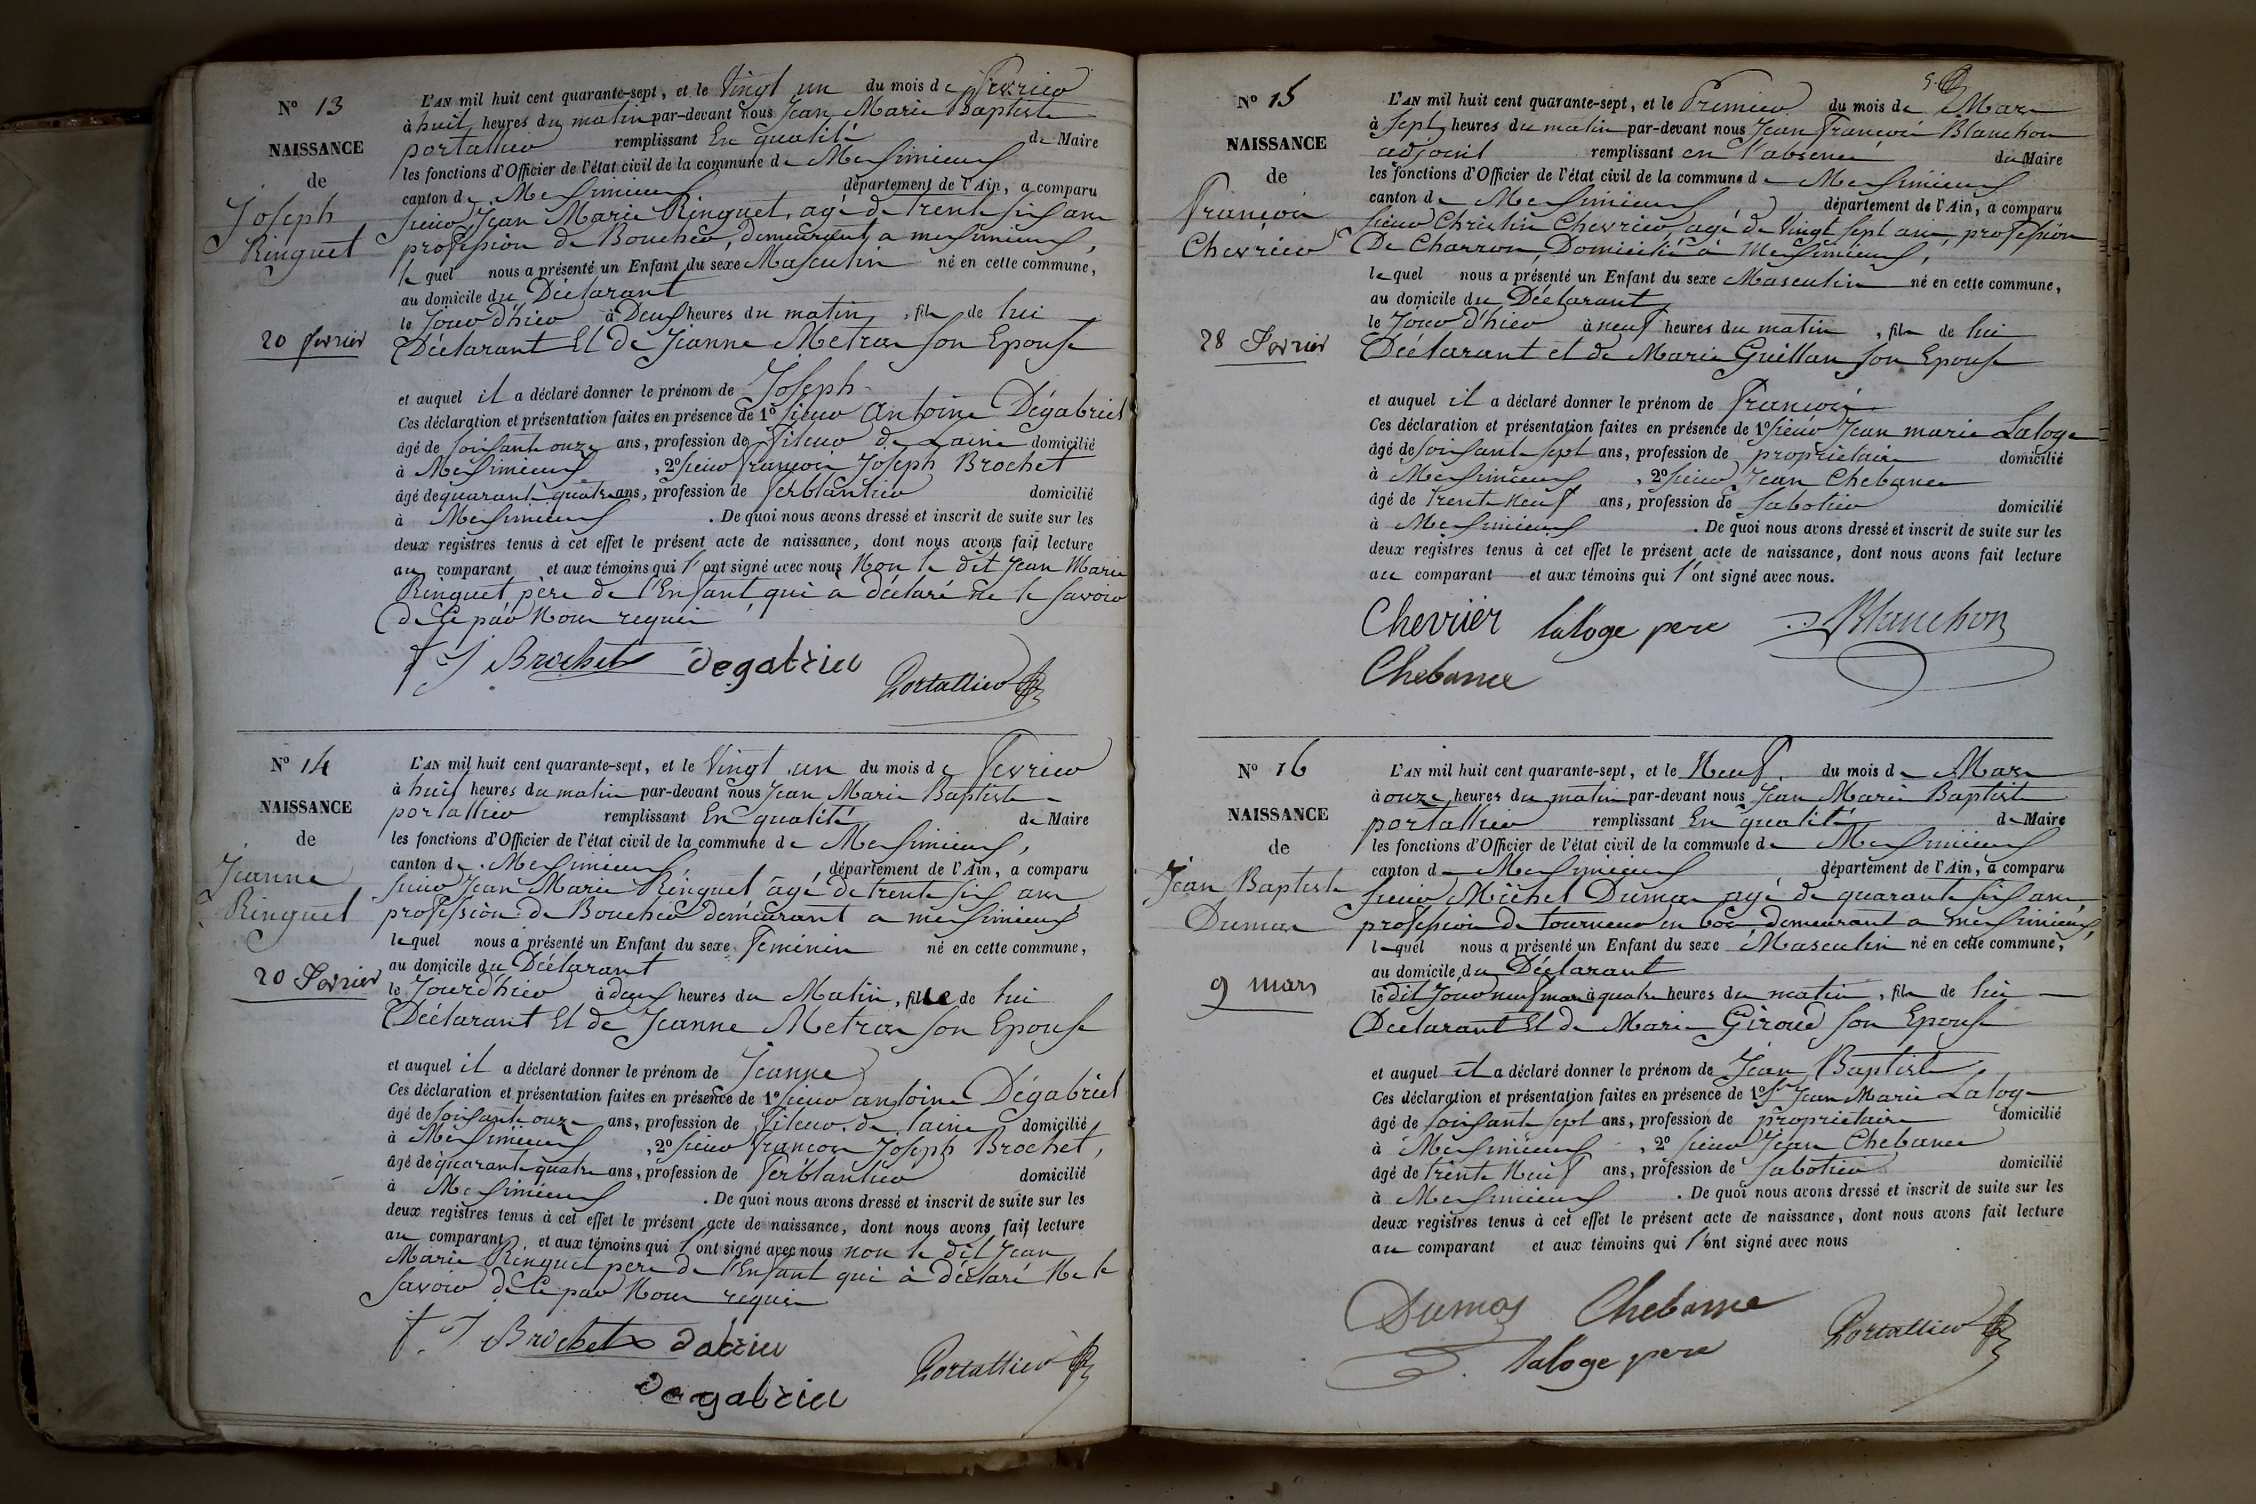 N° 13
NAISSANCE
de
Joseph
Ringuet
20 fevrier
L'AN mil huit cent quarante-sept, et le Vingt un du mois de Fevrier
à huit heures du matin par-devant nous Jean Marie Baptiste
portallier remplissant En qualité de Maire
les fonctions d'Officier de l'état civil de la commune de Meximieux
canton de Meximieux département de l'Ain, a comparu
sieur Jean Marie Ringuet, agé de trente six ans
profession de Boucher, demeurant a meximieux,
lequel nous a présenté un Enfant du sexe Masculin né en cette commune,
au domicile du Déclarant
le Jour d'hier à Deux heures du matin, fils de lui
Déclarant Et de Jeanne Metras son Epouse
et auquel il a déclaré donner le prénom de Joseph
Ces déclaration et présentation faites en présence de 1° sieur Antoine Dégabriel
âgé de soixante onze ans, profession de Fileur de Laine domicilié
à Meximieux, 2° sieur françois Joseph Brochet
âgé de quarante quatre ans, profession de ferblantier domicilié
à Meximieux. De quoi nous avons dressé et inscrit de suite sur les
deux registres tenus à cet effet le présent acte de naissance, dont nous avons fait lecture
au comparant et aux témoins qui l'ont signé avec nous Non le dit Jean Marie
Ringuet père de l'Enfant qui a déclaré ne le savoir
de ce par Nous requis
f J Brochet Degabriel
Portallier
N° 14
NAISSANCE
de
Jeanne
Ringuet
20 Fevrier
L'AN mil huit cent quarante-sept, et le Vingt un du mois de Fevrier
à huit heures du matin par-devant nous Jean Marie Baptiste
portallier remplissant En qualité de Maire
les fonctions d'Officier de l'état civil de la commune de Meximieux,
canton de Meximieux département de l'Ain, a comparu
sieur Jean Marie Ringuet agé de trente six ans,
profession de Boucher demeurant a meximieux
lequel nous a présenté un Enfant du sexe Feminin né en cette commune,
au domicile du Déclarant
le Jour d'hier à deux heures du Matin, fille de lui
Déclarant Et de Jeanne Metras son Epouse
et auquel il a déclaré donner le prénom de Jeanne
Ces déclaration et présentation faites en présence de 1° sieur antoine Dégabriel
âgé de soixante onze ans, profession de Fileur de laine domicilié
à Meximieux, 2° sieur françois Joseph Brochet,
âgé de quarante quatre ans, profession de Ferblantier domicilié
à Meximieux. De quoi nous avons dressé et inscrit de suite sur les
deux registres tenus à cet effet le présent acte de naissance, dont nous avons fait lecture
au comparant et aux témoins qui l'ont signé avec nous non le dit Jean
Marie Ringuet pere de l'Enfant qui à déclaré Ne le
savoir de ce par Nous requis
f. J Brochet Dabriel
Degabriel
Portallier
N° 15
NAISSANCE
de
François
Chevrier
28 Fevrier
L'AN mil huit cent quarante-sept, et le Premier du mois de Mars
à Sept heures du matin par-devant nous Jean François Blanchon
adjoint remplissant en l'absence du Maire
les fonctions d'Officier de l'état civil de la commune de Meximieux
canton de Meximieux, département de l'Ain, a comparu
sieur Christin Chevrier, agé de Vingt sept ans, profession
De Charron, Domicilié à Meximieux,
lequel nous a présenté un Enfant du sexe Masculin né en cette commune,
au domicile du Déclarant
le Jour d'hier à neuf heures du matin, fils de lui
Déclarant et de Marie Guillan son Epouse
et auquel il a déclaré donner le prénom de François
Ces déclaration et présentation faites en présence de 1° sieur Jean marie Laloge
âgé de soixante sept ans, profession de propriétaire domicilié
à Meximieux, 2° sieur Jean Chebance
âgé de trente Neuf ans, profession de sabotier domicilié
à Meximieux. De quoi nous avons dressé et inscrit de suite sur les
deux registres tenus à cet effet le présent acte de naissance, dont nous avons fait lecture
au comparant et aux témoins qui l'ont signé avec nous.
Chevrier laloge pere Blanchon
Chebance
N° 16
NAISSANCE
de
Jean Baptiste
Dumas
9 mars
L'AN mil huit cent quarante-sept, et le Neuf du mois de Mars
à onze heures du matin par-devant nous Jean Marie Baptiste
portallier remplissant En qualité de Maire
les fonctions d'Officier de l'état civil de la commune de Meximieux
canton de Meximieux département de l'Ain, a comparu
sieur Michel Dumas agé de quarante six ans,
profession de tourneur en bois, demeurant a meximieux,
lequel nous a présenté un Enfant du sexe Masculin né en cette commune,
au domicile du Déclarant
le dit Jour neuf mars à quatre heures du matin, fils de lui
Déclarant Et de Marie Giroud son Epouse
et auquel il a déclaré donner le prénom de Jean Baptiste
Ces déclaration et présentation faites en présence de 1° Sr Jean Marie Laloge
âgé de soixante sept ans, profession de propriétaire domicilié
à Meximieux, 2° sieur Jean Chebance
âgé de trente Neuf ans, profession de sabotier domicilié
à Meximieux. De quoi nous avons dressé et inscrit de suite sur les
deux registres tenus à cet effet le présent acte de naissance, dont nous avons fait lecture
au comparant et aux témoins qui l'ont signé avec nous
Dumas Chebance
laloge pere Portallier